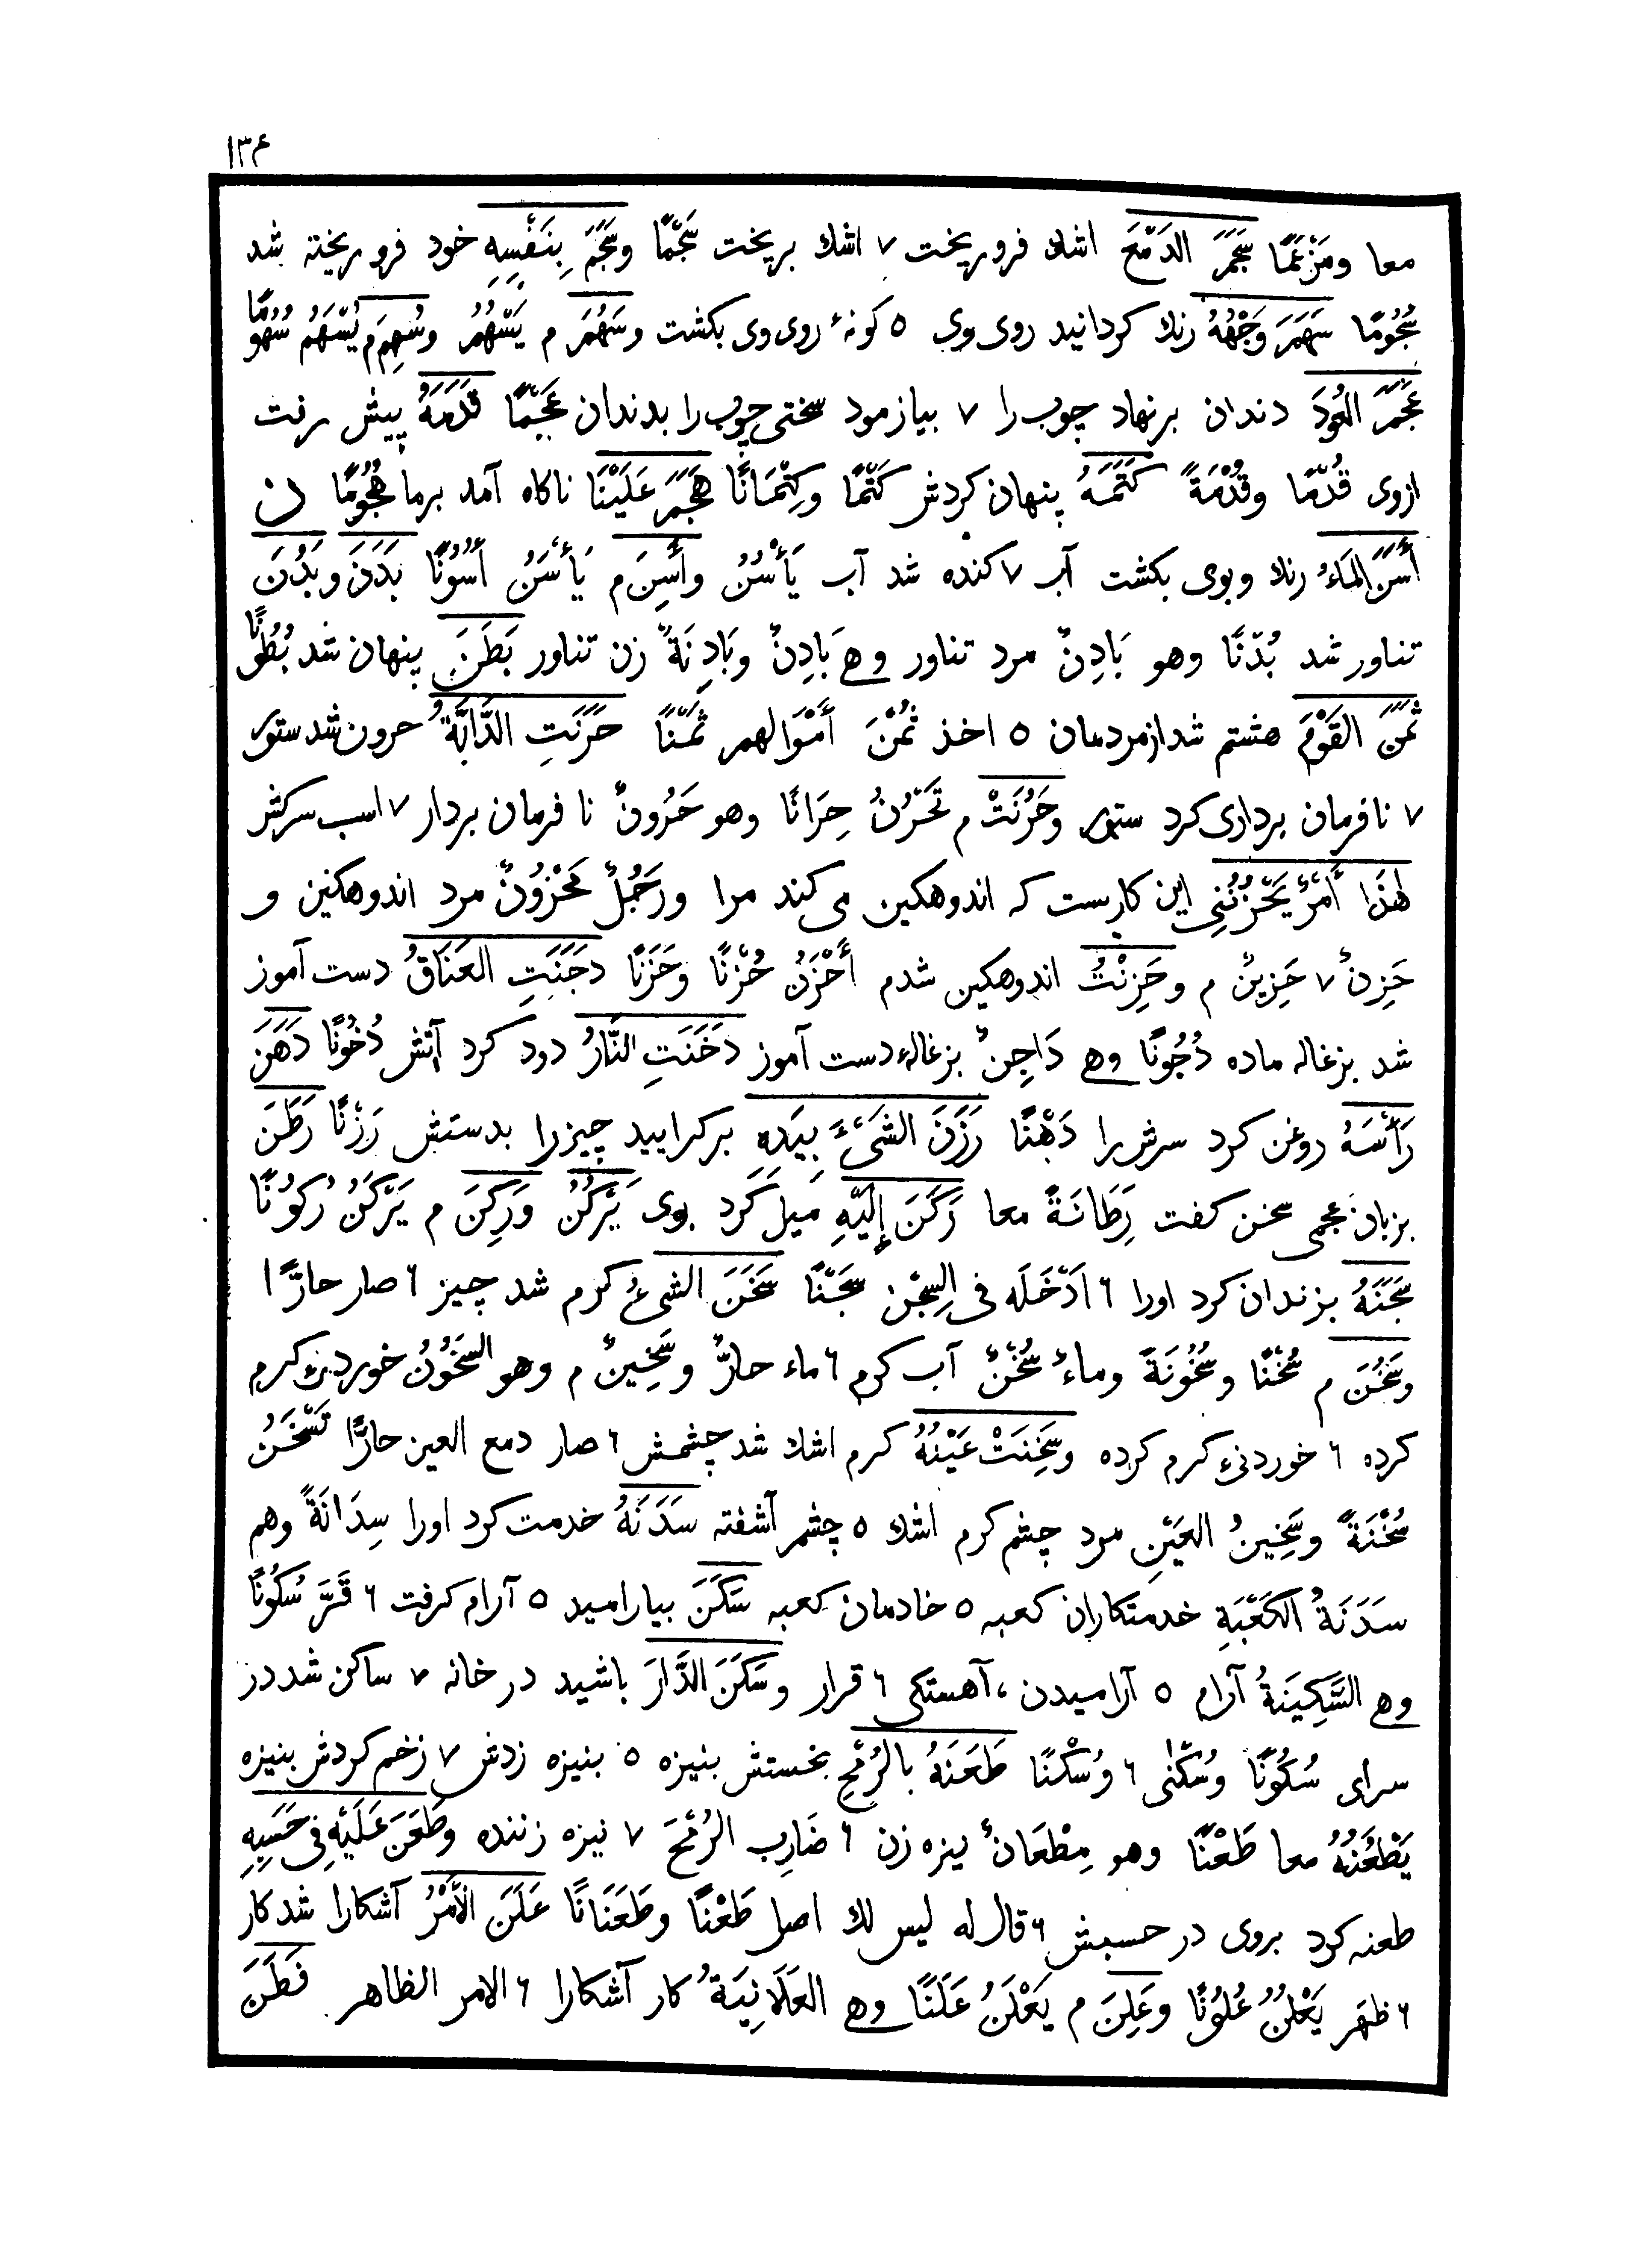 ۱۳۴
معا ومَزْعَمًا سَجَمَ الدَمْعَ اشك فرو ريخت ۷ اشك بريخت سَجْمًا وسَجَمَ بِنَفْسِهِ خود فرو ريخته شد
سُجُومًا سَهَمَ وَجْهُهُ رنك كردانيد روى وى ۵ كونهٔ روى وى بكشت وسَهُمَ م يَسْهُمُ وسُهِمَ م يُسْهَمُ سُهُومًا
عَجَمَ العُودَ دندان برنهاد چوب را ۷ بيازمود سختى چوب را بدندان عَجْمًا قَدَمَهُ پيش رفت
ازوى قُدْمًا وقُدْمَةً كَتَمَهُ پنهان كردش كَتْمًا وكِتْمَانًا هَجَمَ عَلَيْنَا ناكاه آمد برما هُجُومًا ن
أَسَنَ المَاءُ رنك وبوى بكشت آب ۷ كنده شد آب يَأْسُنُ وأَسِنَ م يَأْسَنُ أُسُونًا بَدَنَ وبَدُنَ
تناور شد بُدْنًا وهو بَادِنٌ مرد تناور وهي بَادِنٌ وبَادِنَةٌ زن تناور بَطَنَ پنهان شد بُطُونًا
ثَمَنَ القَوْمَ هشتم شد از مردمان ۵ اخذ ثُمْنَ أَمْوَالهم ثَمْنًا حَرَنَتِ الدَّابَّةُ حرون شد ستور
۷ نافرمان بردارى كرد ستور وحَرُنَتْ م تَحْرُنُ حِرَانًا وهو حَرُونٌ نا فرمان بردار ۷ اسب سركش
هٰذَا أَمْرٌ يَحْزُنُنِى اين كاريست كه اندوهكين مى كند مرا ورَجُلٌ مَحْزُونٌ مرد اندوهكين و
حَزِنٌ ۷ حَزِينٌ م وحَزِنْتُ اندوهكين شدم أَحْزَنُ حُزْنًا وحَزَنًا دجَنَتِ العَنَاقُ دست آموز
شد بزغاله ماده دُجُونًا وهي دَاجِنٌ بزغالهٔ دست آموز دَخَنَتِ النَّارُ دود كرد آتش دُخُونًا دَهَنَ
رَأْسَهُ روغن كرد سرش را دَهْنًا رَزَنَ الشَىْءَ بِيَدِه بركراييد چيزرا بدستش رَزْنًا رَطَنَ
بزبان عجمى سخن كفت رِطَانَةً معا رَكَنَ إِلَيْهِ ميل كرد بوى يَرْكُنُ ورَكِنَ م يَرْكَنُ رُكُونًا
سَجَنَهُ بزندان كرد اورا ۶ اَدْخَلَه فى السِجْن سَجْنًا سَخَنَ الشىءُ كرم شد چيز ۶ صار حارًّا
وسَخُنَ م سُخْنًا وسُخُونَةً وماءٌ سُخْنٌ آب كرم ۶ ماء حارٌّ وسَخِينٌ م وهو السَخُونُ خوردنىٔ كرم
كرده ۶ خوردنىٔ كرم كرده وسَخِنَتْ عَيْنُهُ كرم اشك شد چشمش ۶ صار دمع العين حارًّا تَسْخَنُ
سُخْنَةً وسَخِينُ العَيْنِ مرد چشم كرم اشك ۵ چشم آشفته سَدَنَهُ خدمت كرد اورا سِدَانَةً وهم
سَدَنَةُ الكَعْبَةِ خدمتكاران كعبه ۵ خادمان كعبه سَكَنَ بياراميد ۵ آرام كرفت ۶ قَرَّ سُكُونًا
وهي السَّكِينَةُ آرام ۵ آراميدن ، آهستكى ۶ قرار وسَكَنَ الدَّارَ باشيد در خانه ۷ ساكن شد در
سراى سُكُونًا وسُكْنٰى ۶ وسُكْنًا طَعَنَهُ بالرُمْحِ بخستش بنيزه ۵ بنيزه زدش ۷ زخم كردش بنيزه
يَطْعُنُهُ معا طَعْنًا وهو مِطْعَانٌ نيزه زن ۶ ضَارِب الرُمْحَ ۷ نيزه زننده وطَعَنَ عَلَيْهِ فى حَسَبِهِ
طعنه كرد بروى در حسبش ۶ قال له ليس لك اصل طَعْنًا وطَعَنَانًا عَلَنَ الأَمْرُ آشكارا شد كار
۶ ظهَر يَعْلُنُ عُلُونًا وعَلِنَ م يَعْلَنُ عَلَنًا وهي العَلَانِيَةُ كار آشكارا ۶ الامر الظاهر فَطَنَ